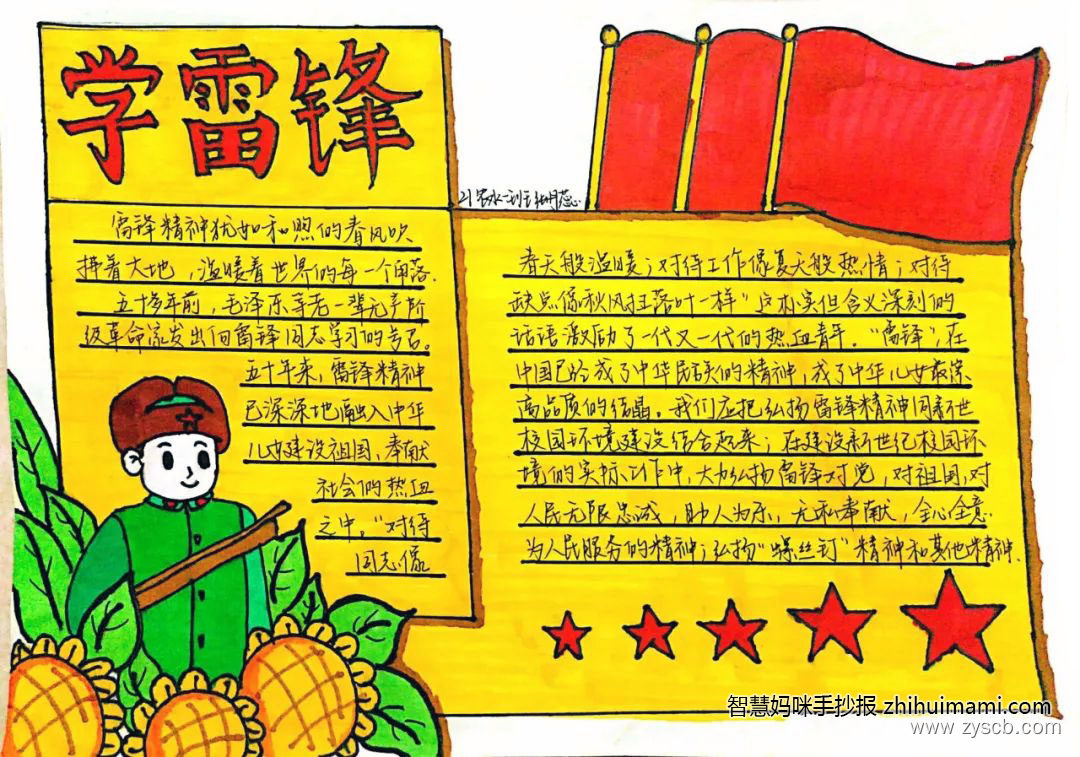 学雷锋
雷锋精神犹如和煦的春风吹
拂着大地，温暖着世界的每一个角落.
五十多年前，毛泽东等老一辈无产阶
级革命家发出向雷锋同志学习的号召。
五十年来，雷锋精神
已深深地融入中华
儿女建设祖国，奉献
社会的热血
之中。“对待
同志像
春天般温暖；对待工作像夏天般热情；对待
缺点像秋风扫落叶一样”这朴实但含义深刻的
话语激励了一代又一代的热血青年。“雷锋”，在
中国已经成了中华民族的精神，成了中华儿女最
高品质的结晶。我们应把弘扬雷锋精神同
校园环境建设结合起来；在建设新世纪校园环
境的实际工作中，大力弘扬雷锋对党，对祖国，对
人民无限忠诚，助人为乐，无私奉献，全心全意
为人民服务的精神；弘扬“螺丝钉”精神和其他精神.
智慧妈咪手抄报 zhihuimami.com
www.zyscb.com